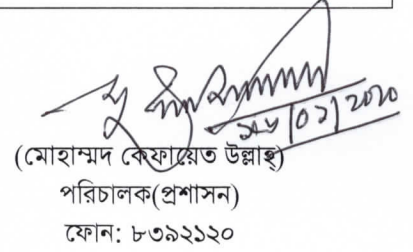 (মোহাম্মদ কেফায়েত উল্লাহ)
পরিচালক(প্রশাসন)
ফোন: ৮৩৯২১২০